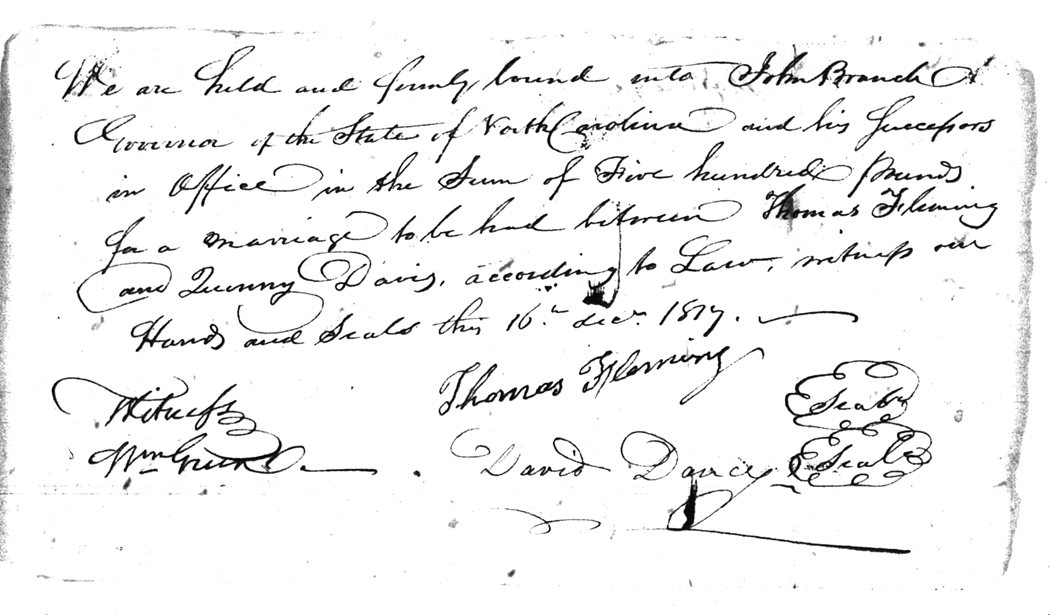 We are held and firmly bound unto John Branch
Governor of the State of North Carolina and his Successors
in Office in the Sum of Five hundred Pounds
for a marriage to be had between Thomas Fleming
and Quinny Davis, according to Law, witness our
Hands and Seals this 16th Decr. 1817.
Thomas Fleming Seal
Witness
Wm Green David Dancy Seal